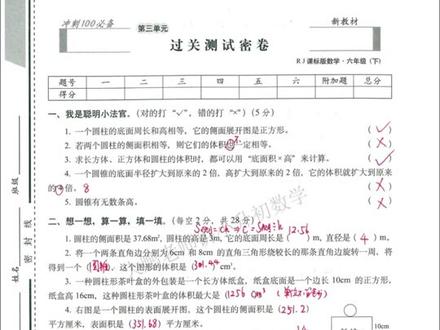 冲刺100必备
第三单元
新教材
过关测试密卷
RJ课标版数学·六年级(下)
题号 一 二 三 四 五 六 附加题 总分
得分
一、我是聪明小法官。(对的打“√”,错的打“×”)(5分)
1. 一个圆柱的底面周长和高相等,它的侧面展开图是正方形。 (√)
2. 若两个圆柱的侧面积相等,则它们的体积一定相等。 (×)
3. 求长方体、正方体和圆柱的体积时,都可以用“底面积×高”来计算。 (√)
4. 一个圆锥的底面半径扩大到原来的2倍,高扩大到原来的2倍,它的体积就扩大到原来
的倍。8 (×)
5. 圆锥有无数条高。 (×)
二、想一想,算一算,填一填。(每空2分,共28分)
12.56
1. 圆柱的侧面积是37.68m²,圆柱的高是3m,它的底面周长是( )m,直径是(4)m。
2. 将一个两条直角边分别为6cm和8cm的直角三角形绕较长的那条直角边旋转一周,将
得到一个(圆锥),这个图形的体积是(301.44)cm³。
3. 一种圆柱形茶叶盒的外包装是一个长方体纸盒,纸盒底面是一个边长10cm的正方形,
纸盒高16cm,这种圆柱形茶叶盒的体积最大是(1256 cm³)
4. 右图是一个圆柱的表面展开图。这个圆柱的侧面积是(251.2)
平方厘米,表面积是(351.68)平方厘米,
班级
姓名
密 封 线